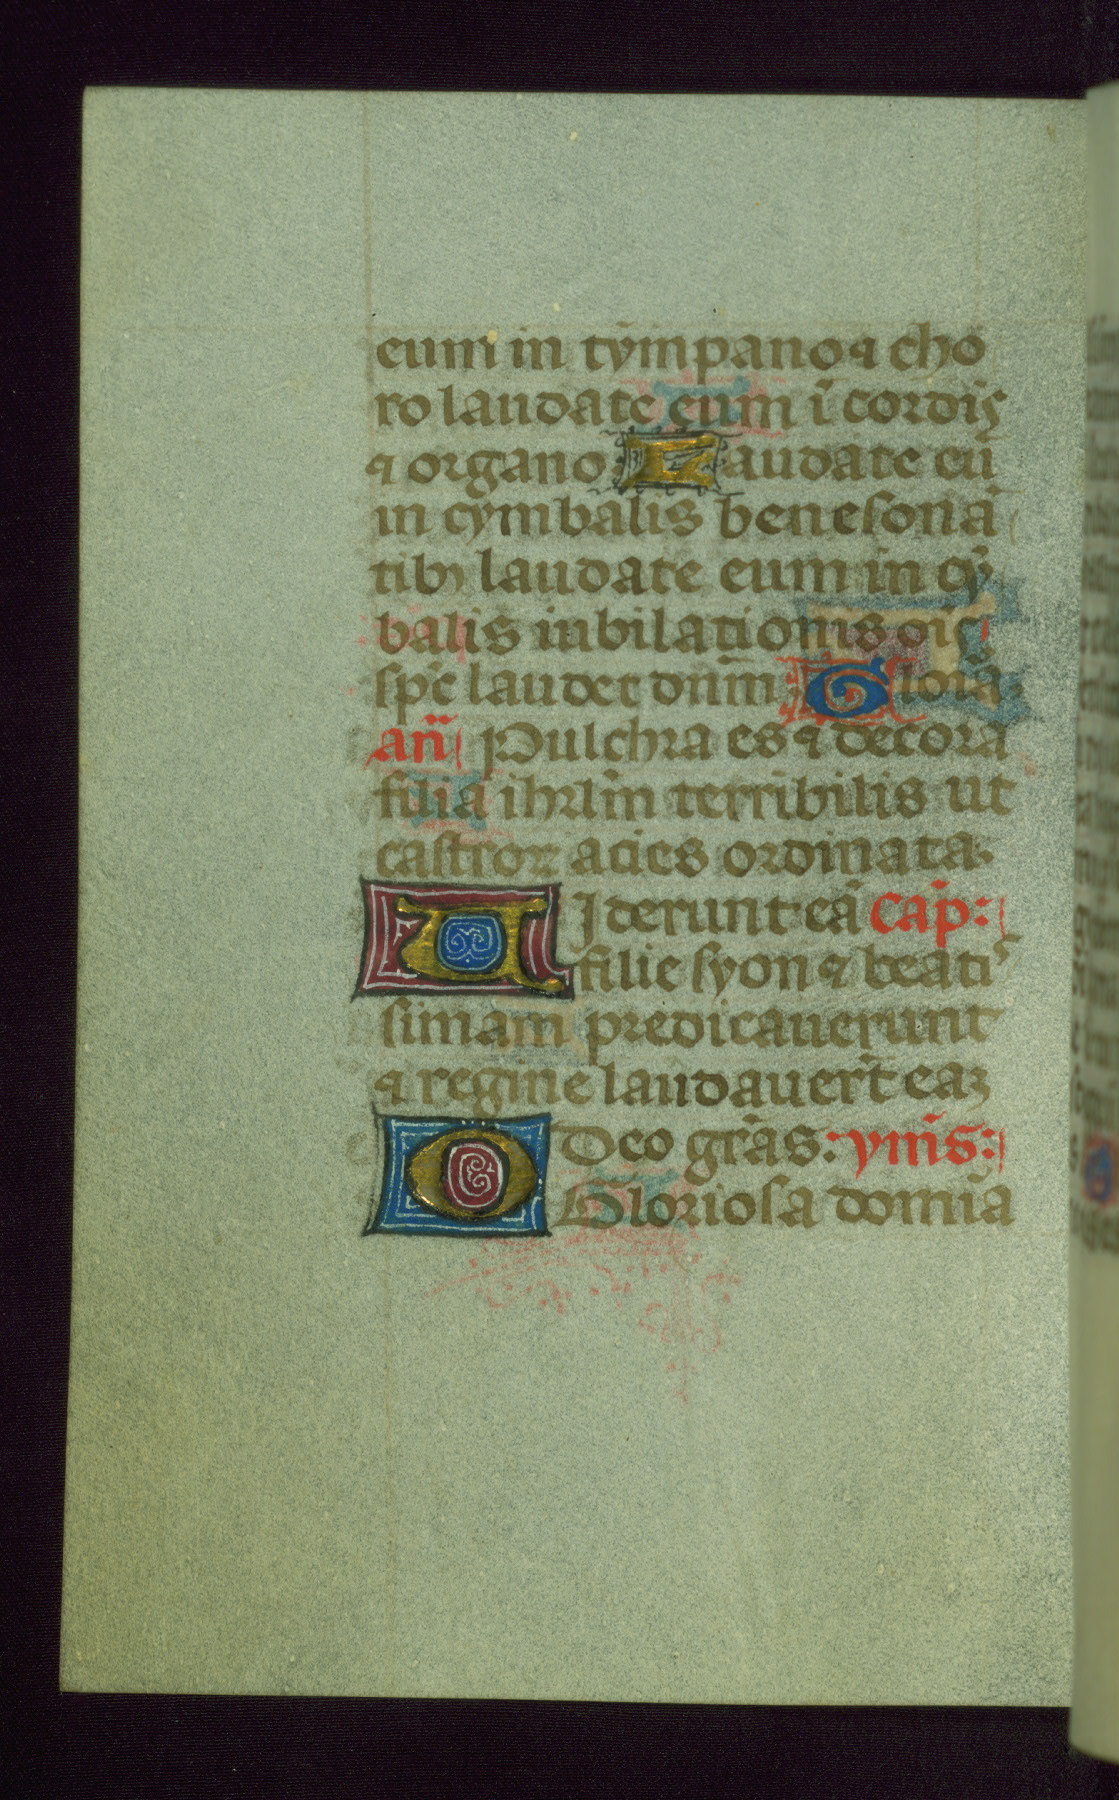 eum in tympano ⁊ cho
ro laudate eum ī cordis
⁊ organo. Laudate eū
in cymbalis benesonā
tib; laudate eum in cȳ
balis iubilationis oīs
sp̄c laudet dn̄m Gloīa.
an̄ Pulchra es ⁊ decora
filia ihrl̄m terribilis ut
castroꝝ acies ordinata.
VIderunt eā cap̄:
filie syon ⁊ beatis
simam predicauerunt
⁊ regine laudauer̄t eaꝫ
Deo gr̄as: ym̄s:
O Gloriosa domīa